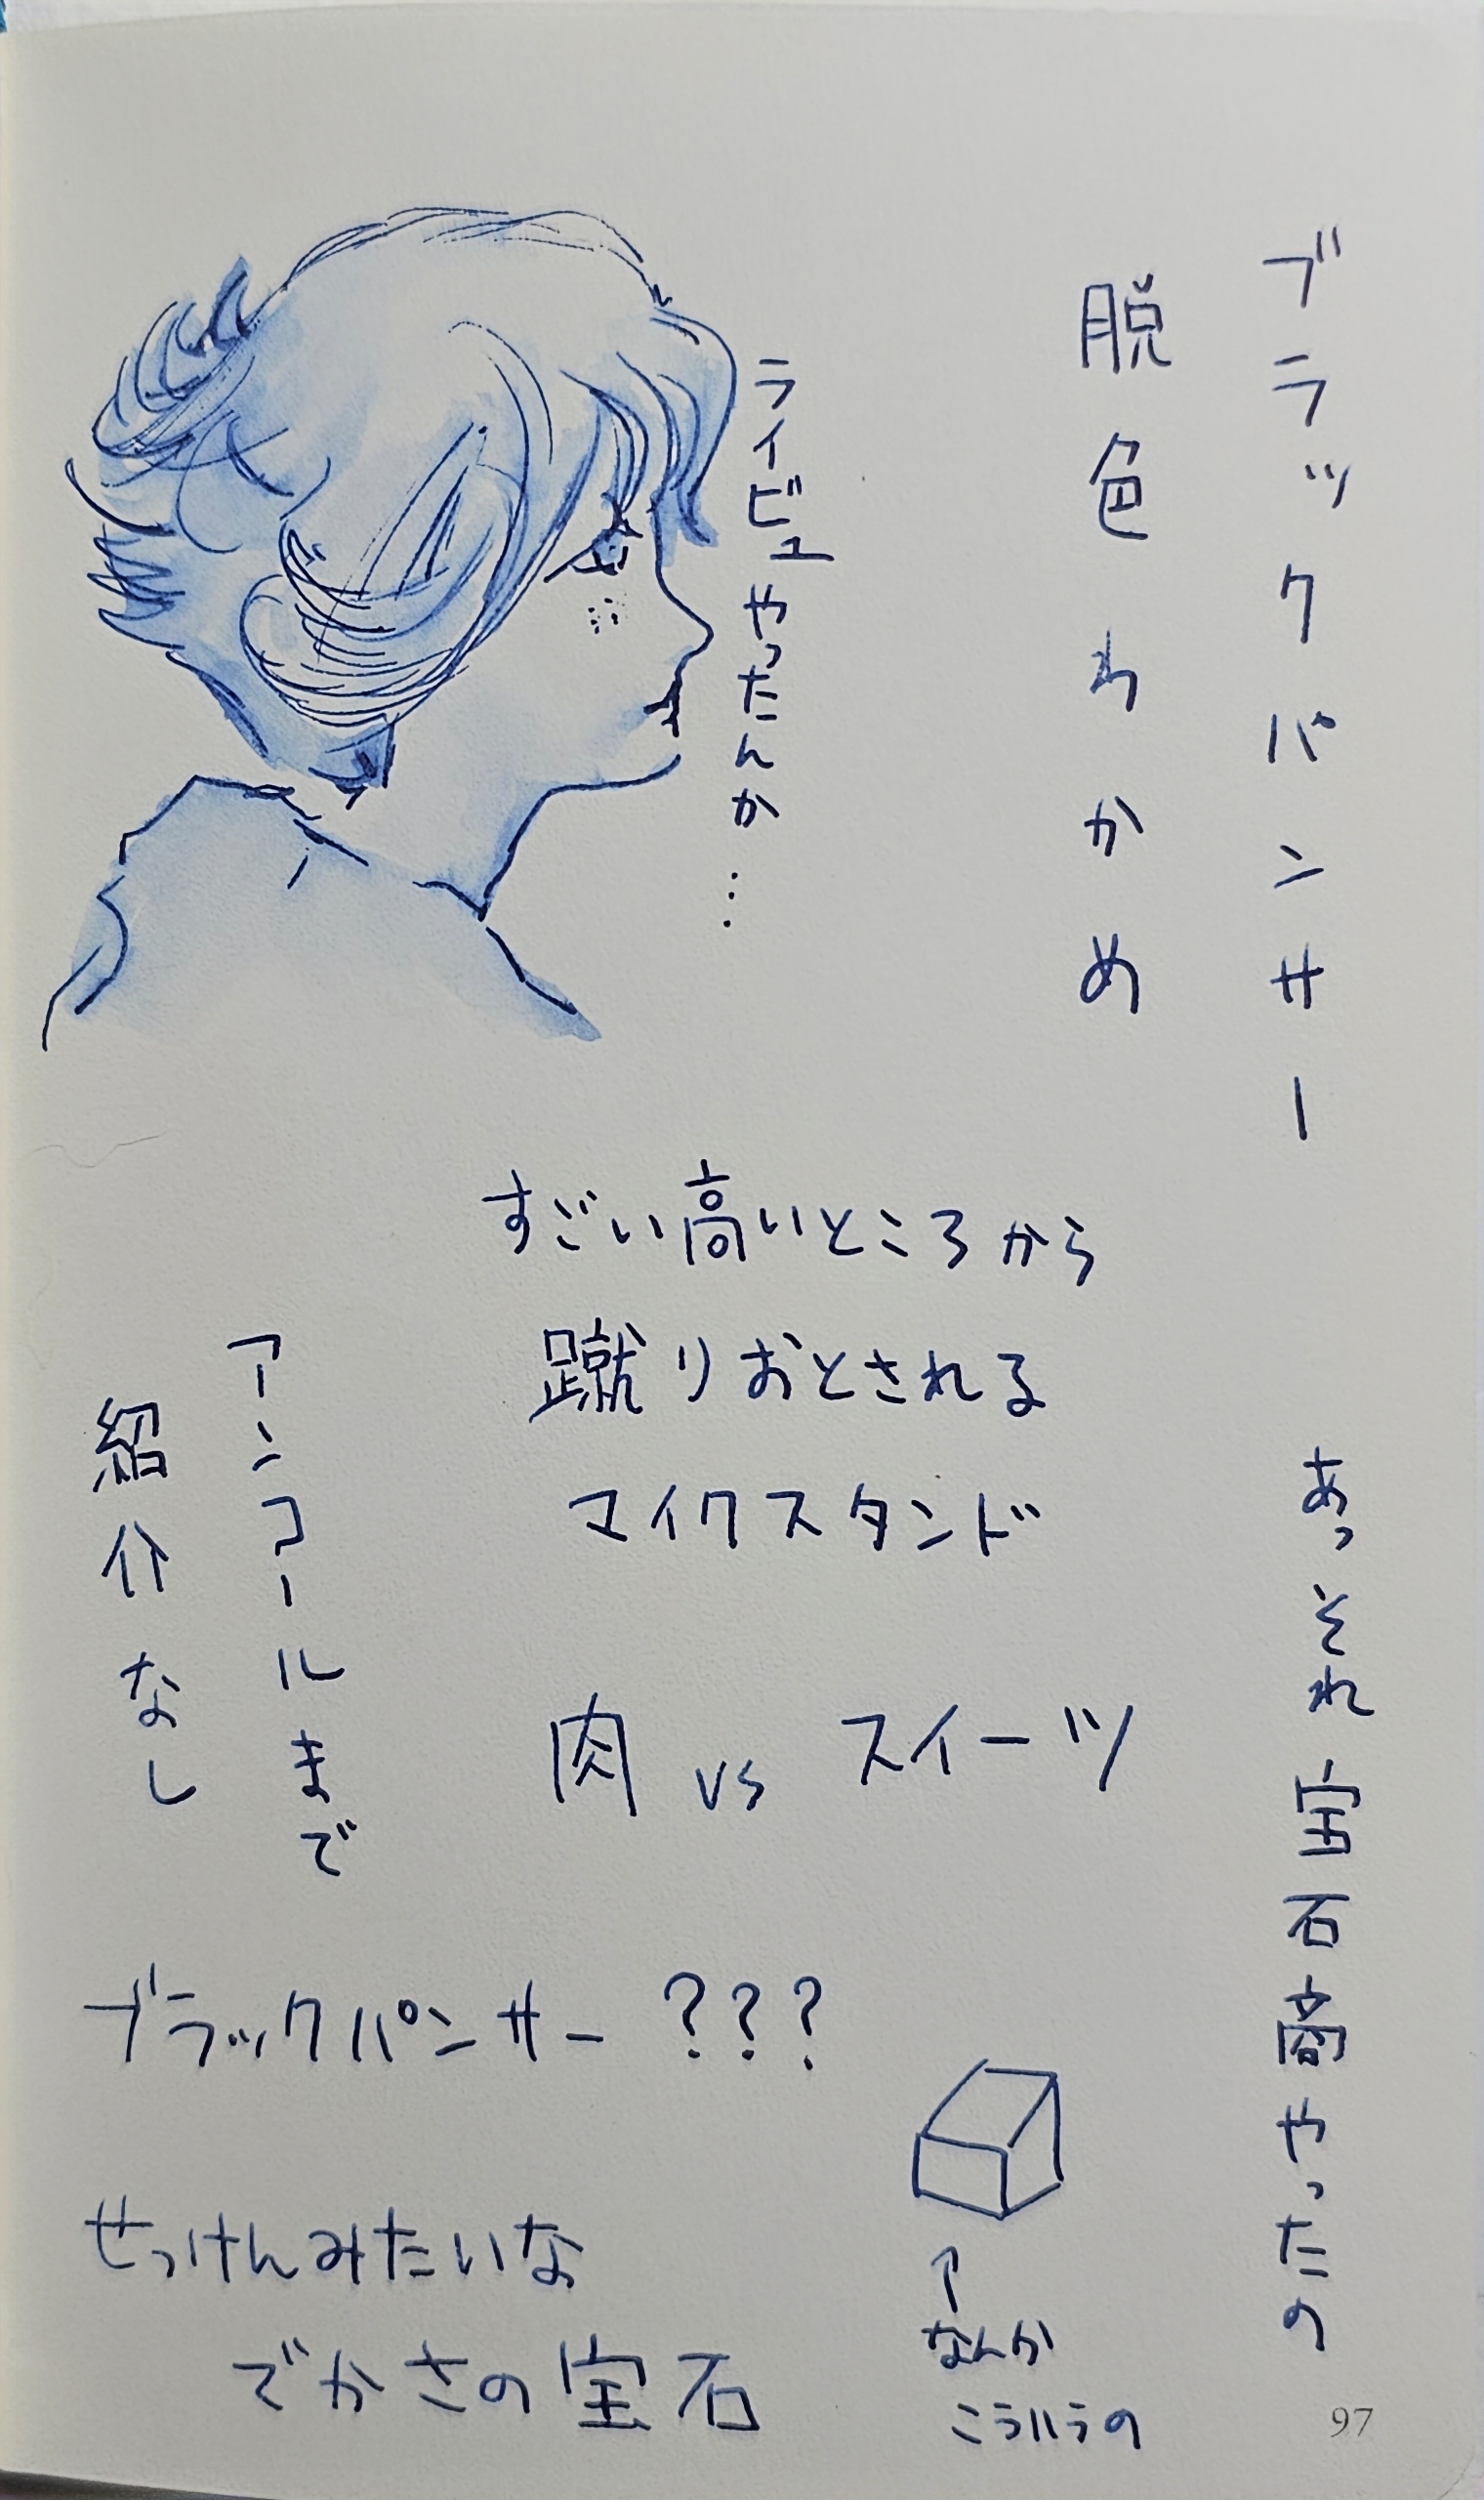 ブラックパンサー
脱色わかめ
ライビュやったんか…
すごい高いところから
蹴りおとされる
マイクスタンド
あっそれ宝石商やったの
アンコールまで
紹介なし
肉 vs スイーツ
ブラックパンサー???
せっけんみたいな
でかさの宝石
↑
なんか
こういうの
97